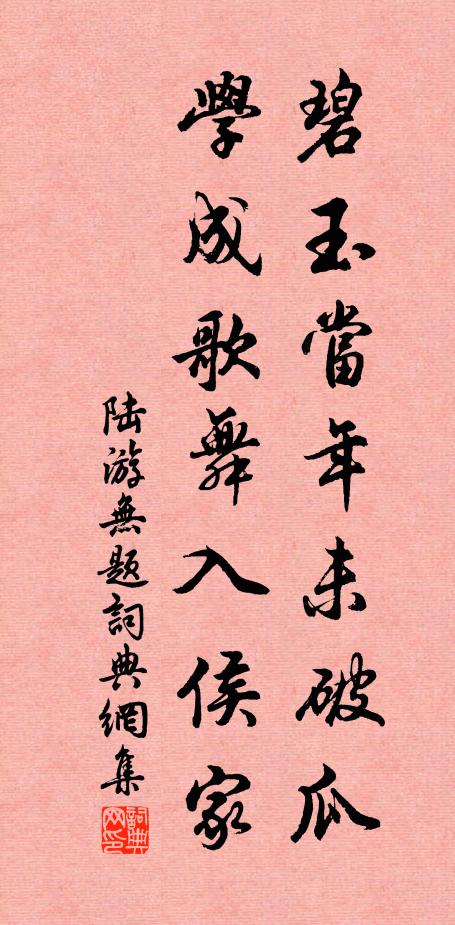 碧玉當年未破瓜
學成歌舞入侯家
陆游無題詞典網集
詞典網印